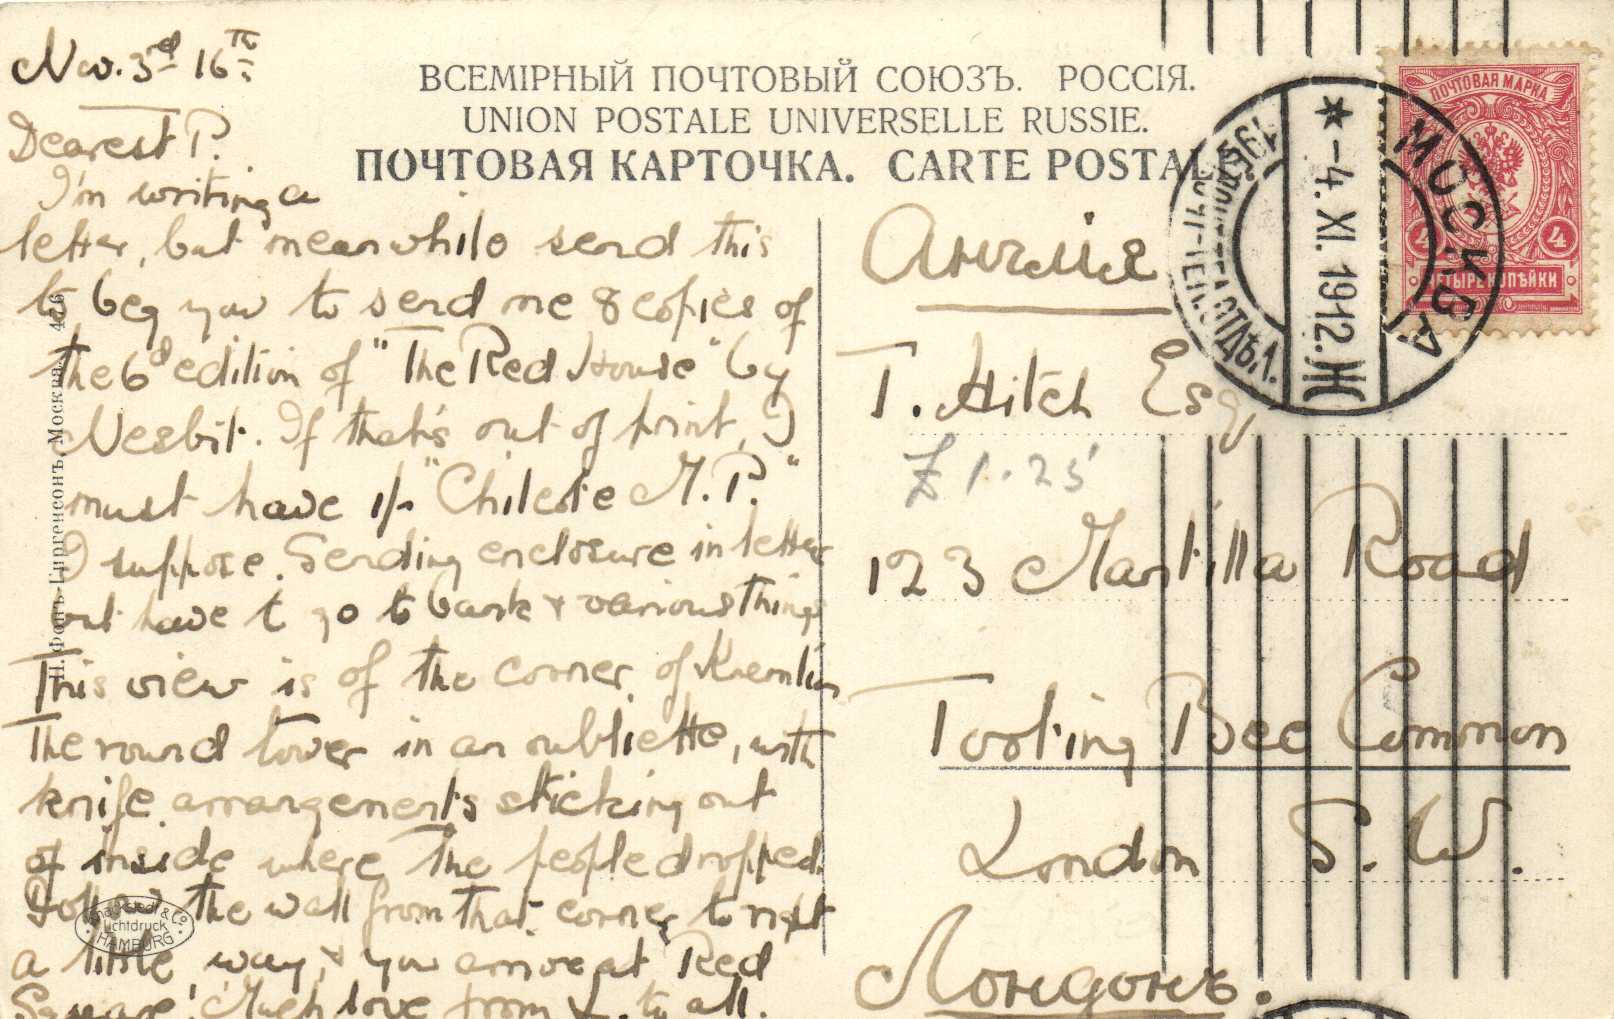 Nov. 3rd 16th
ВСЕМІРНЫЙ ПОЧТОВЫЙ СОЮЗЪ. РОССІЯ.
UNION POSTALE UNIVERSELLE RUSSIE.
ПОЧТОВАЯ КАРТОЧКА. CARTE POSTALE
Dearest P.
I'm writing a
letter, but meanwhile send this
to beg you to send me 8 copies of
the 6d edition of "The Red House" by
Nesbit. If that's out of print, I
must have "Chilcote M.P."
I suppose. Sending enclosure in letter
but have to go to bank & various things
This view is of the corner of Kremlin
The round tower in an oubliette, with
knife arrangements sticking out
of inside where the people dropped.
Follow the wall from that corner to right
a little way, & you arrive at Red
Square! Much love from L. to all.
Н. Фонъ-Гиргенсонъ, Москва
Lichtdruck
HAMBURG
ПОЧТОВАЯ МАРКА
4 4
ЧЕТЫРЕ КОПѢЙКИ
МОСКВА
* -4. XI. 1912. Ж
Англія
T. Hitch Esq
£1.25
123 Mantilla Road
Tooting Bec Common
London S.W.
Лондонъ.